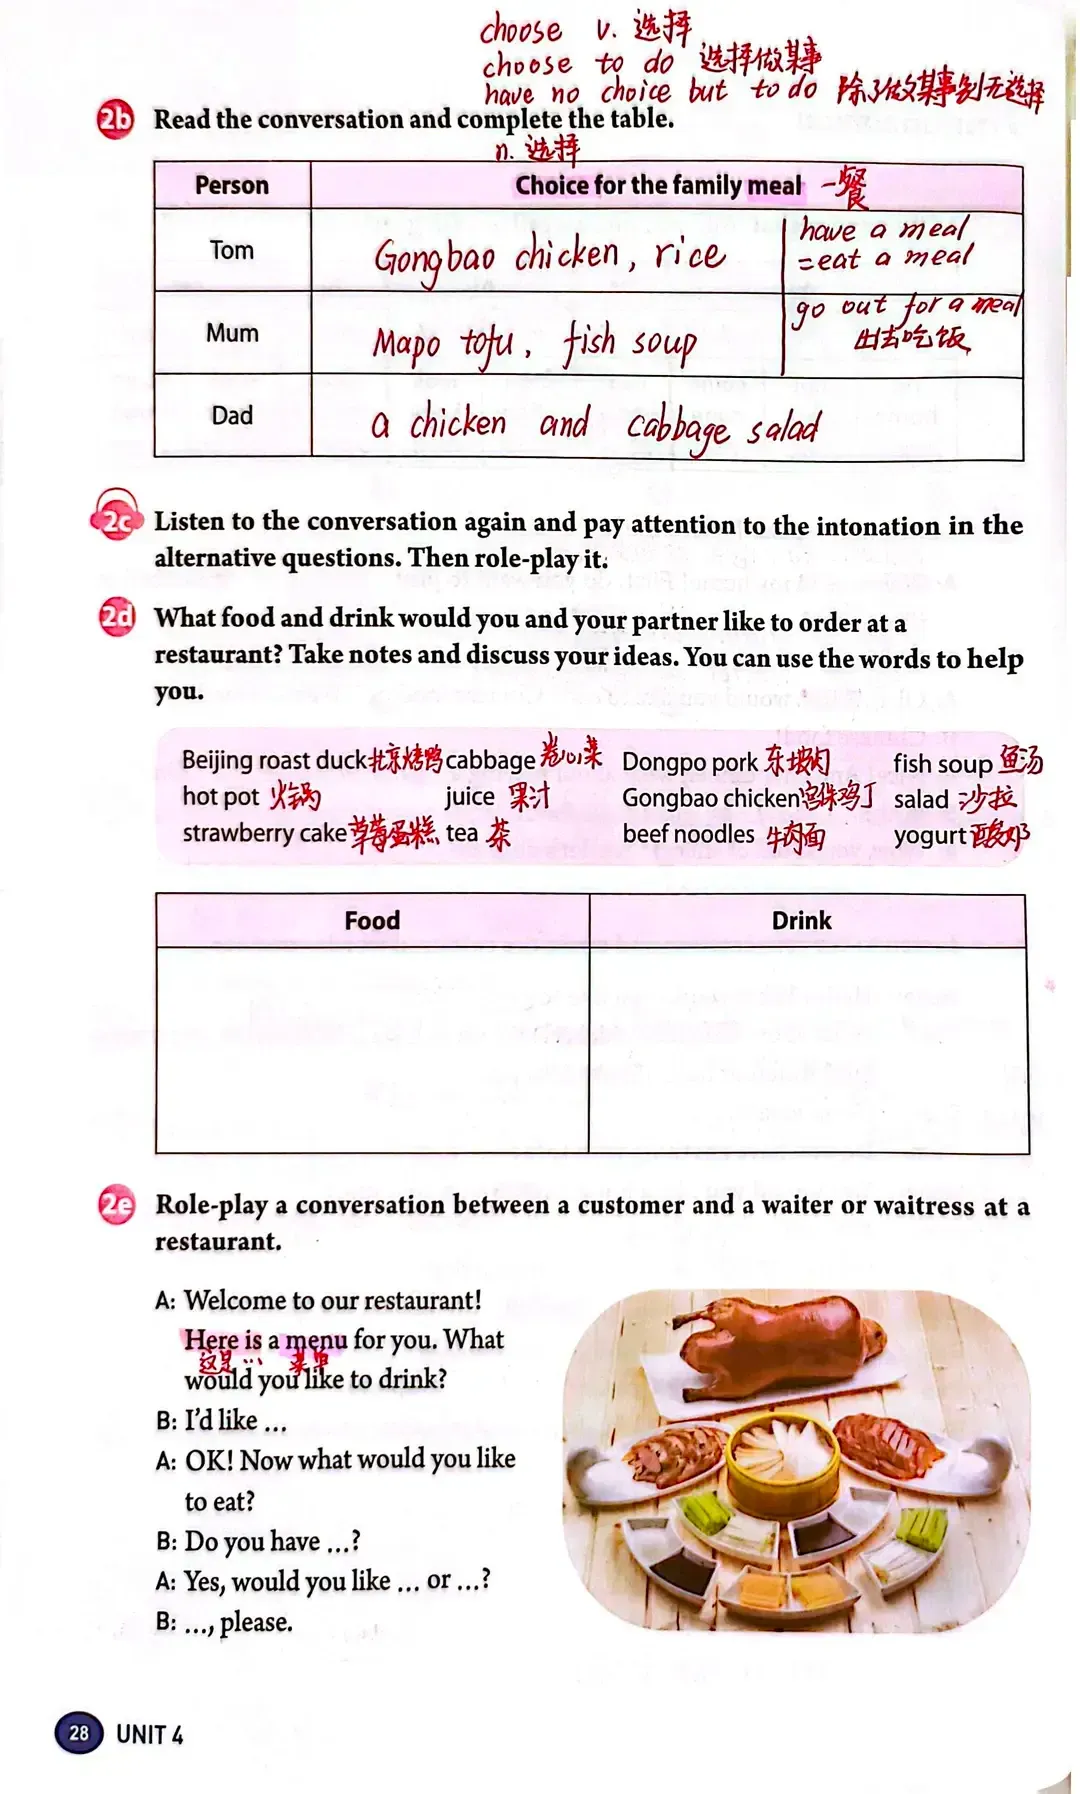 choose v. 选择
choose to do 选择做某事
have no choice but to do 除了做某事别无选择
2b Read the conversation and complete the table.
n. 选择
Person Choice for the family meal 一餐
Tom Gongbao chicken, rice
have a meal
=eat a meal
Mum Mapo tofu, fish soup
go out for a meal
出去吃饭
Dad a chicken and cabbage salad
2c Listen to the conversation again and pay attention to the intonation in the
alternative questions. Then role-play it.
2d What food and drink would you and your partner like to order at a
restaurant? Take notes and discuss your ideas. You can use the words to help
you.
Beijing roast duck 北京烤鸭 cabbage 卷心菜 Dongpo pork 东坡肉 fish soup 鱼汤
hot pot 火锅 juice 果汁 Gongbao chicken 宫保鸡丁 salad 沙拉
strawberry cake 草莓蛋糕 tea 茶 beef noodles 牛肉面 yogurt 酸奶
Food Drink
2e Role-play a conversation between a customer and a waiter or waitress at a
restaurant.
A: Welcome to our restaurant!
Here is a menu for you. What
这是… 菜单
would you like to drink?
B: I'd like ...
A: OK! Now what would you like
to eat?
B: Do you have ...?
A: Yes, would you like ... or ...?
B: ..., please.
28 UNIT 4